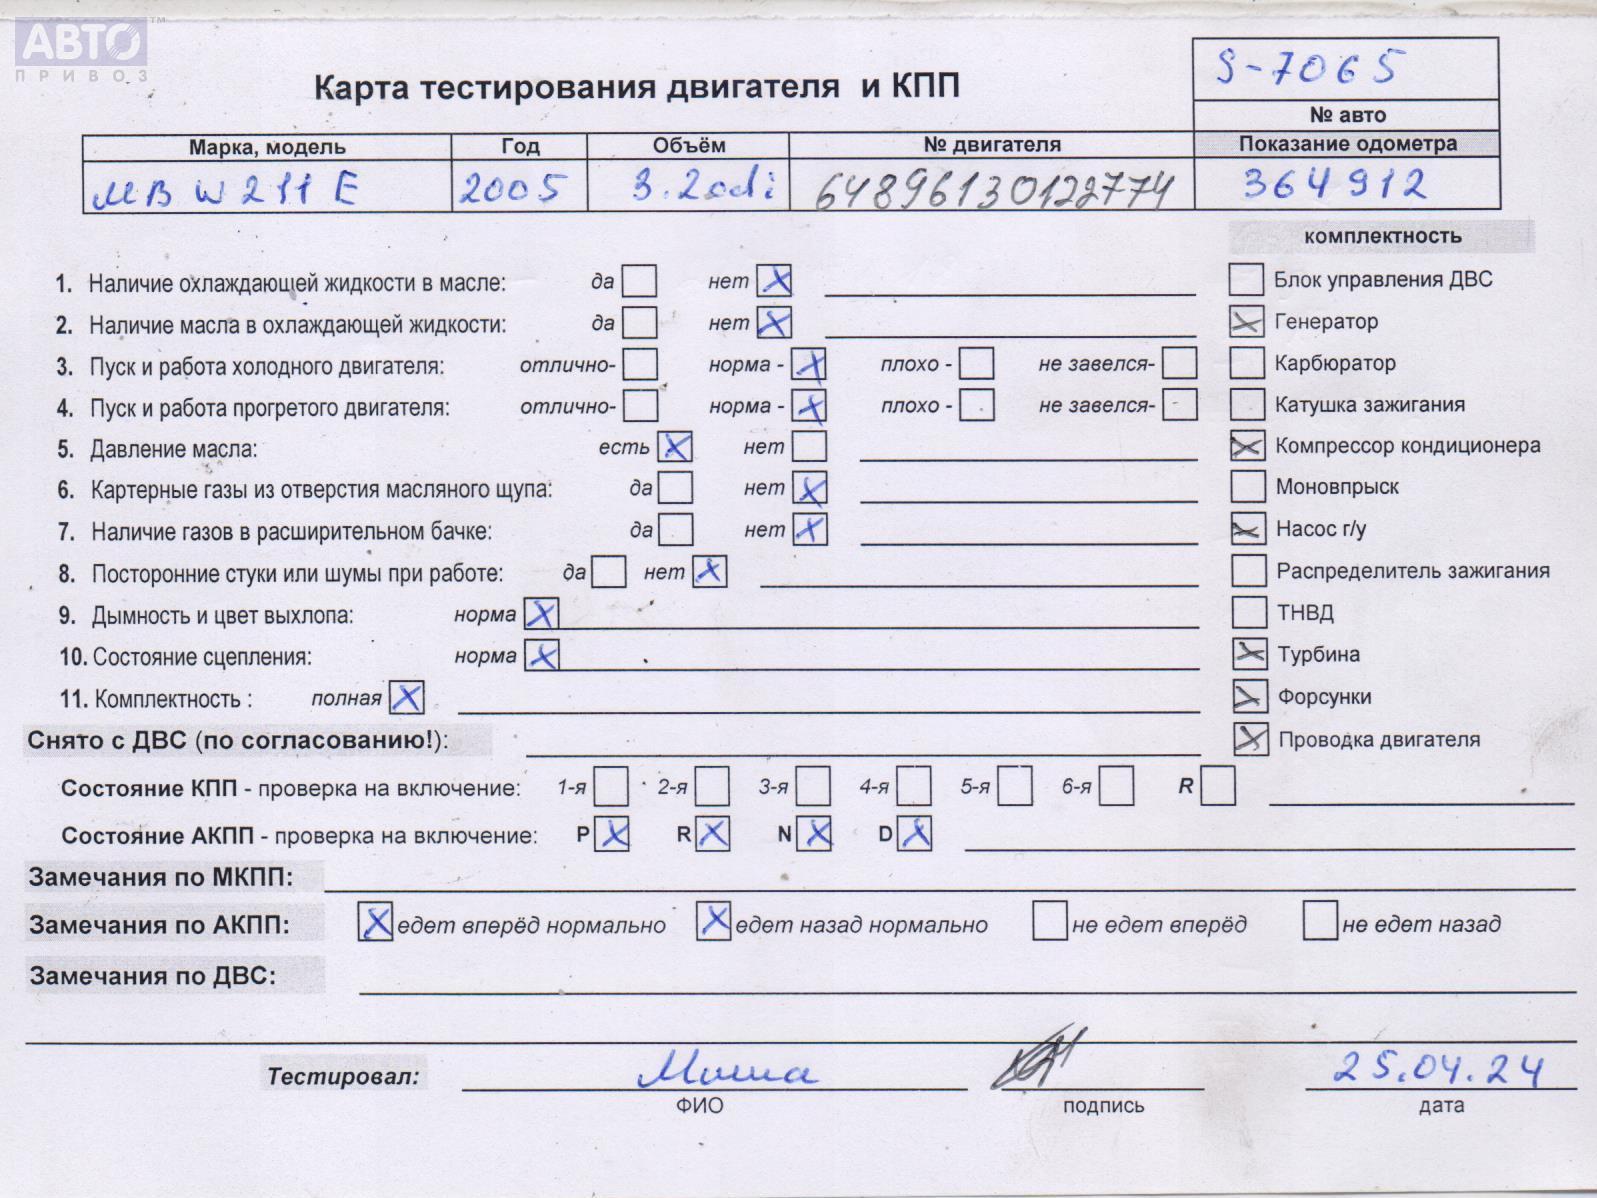 АВТО™
ПРИВОЗ
S-7065
Карта тестирования двигателя и КПП
№ авто
Марка, модель Год Объём № двигателя Показание одометра
MB W211 E 2005 3.2cdi 64896130122774 364912
комплектность
1. Наличие охлаждающей жидкости в масле: да нет X Блок управления ДВС
2. Наличие масла в охлаждающей жидкости: да нет X X Генератор
3. Пуск и работа холодного двигателя: отлично- норма - X плохо - не завелся- Карбюратор
4. Пуск и работа прогретого двигателя: отлично- норма - X плохо - не завелся- Катушка зажигания
5. Давление масла: есть X нет X Компрессор кондиционера
6. Картерные газы из отверстия масляного щупа: да нет X Моновпрыск
7. Наличие газов в расширительном бачке: да нет X X Насос г/у
8. Посторонние стуки или шумы при работе: да нет X Распределитель зажигания
9. Дымность и цвет выхлопа: норма X ТНВД
10. Состояние сцепления: норма X X Турбина
11. Комплектность : полная X X Форсунки
Снято с ДВС (по согласованию!): X Проводка двигателя
Состояние КПП - проверка на включение: 1-я 2-я 3-я 4-я 5-я 6-я R
Состояние АКПП - проверка на включение: P X R X N X D X
Замечания по МКПП:
Замечания по АКПП: X едет вперёд нормально X едет назад нормально не едет вперёд не едет назад
Замечания по ДВС:
Тестировал: Миша 25.04.24
ФИО подпись дата